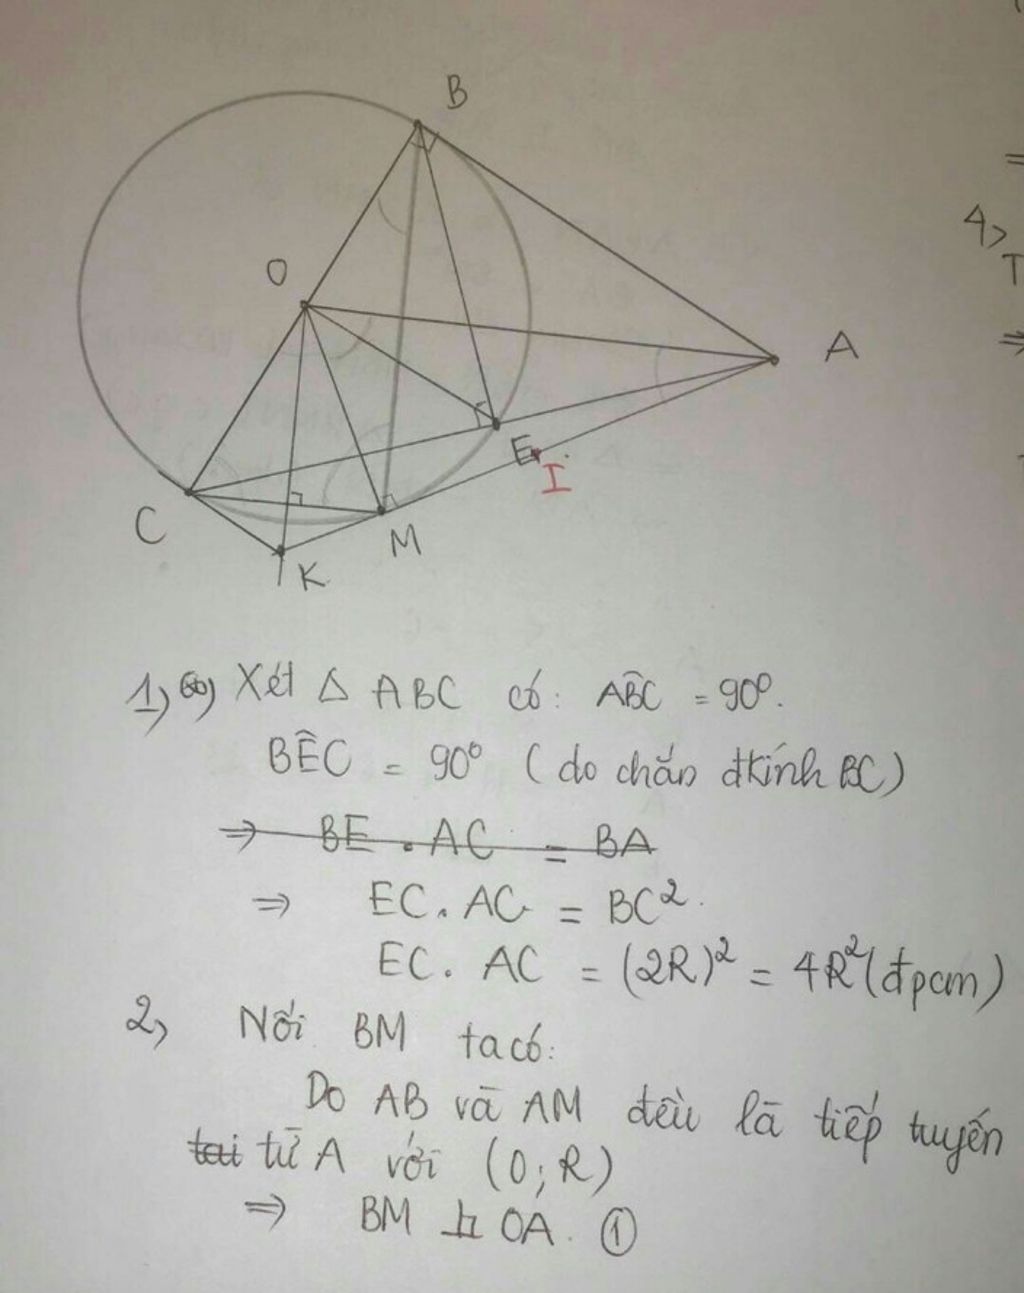 B
O
A
E
I
C
M
K
4,
T
=
⇒
1, a) Xét Δ ABC có: ABC = 90°.
BÊC = 90° (do chắn đkính BC)
⇒ BE . AC = BA
⇒ EC. AC = BC².
EC. AC = (2R)² = 4R² (đpcm)
2, Nối BM ta có:
Do AB và AM đều là tiếp tuyến
tại từ A với (O; R)
⇒ BM ⊥ OA. ①